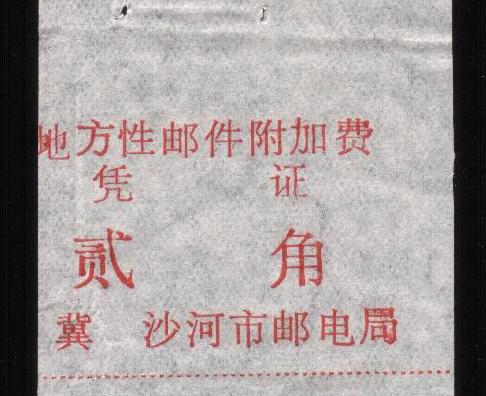 地方性邮件附加费
凭证
贰角
冀 沙河市邮电局